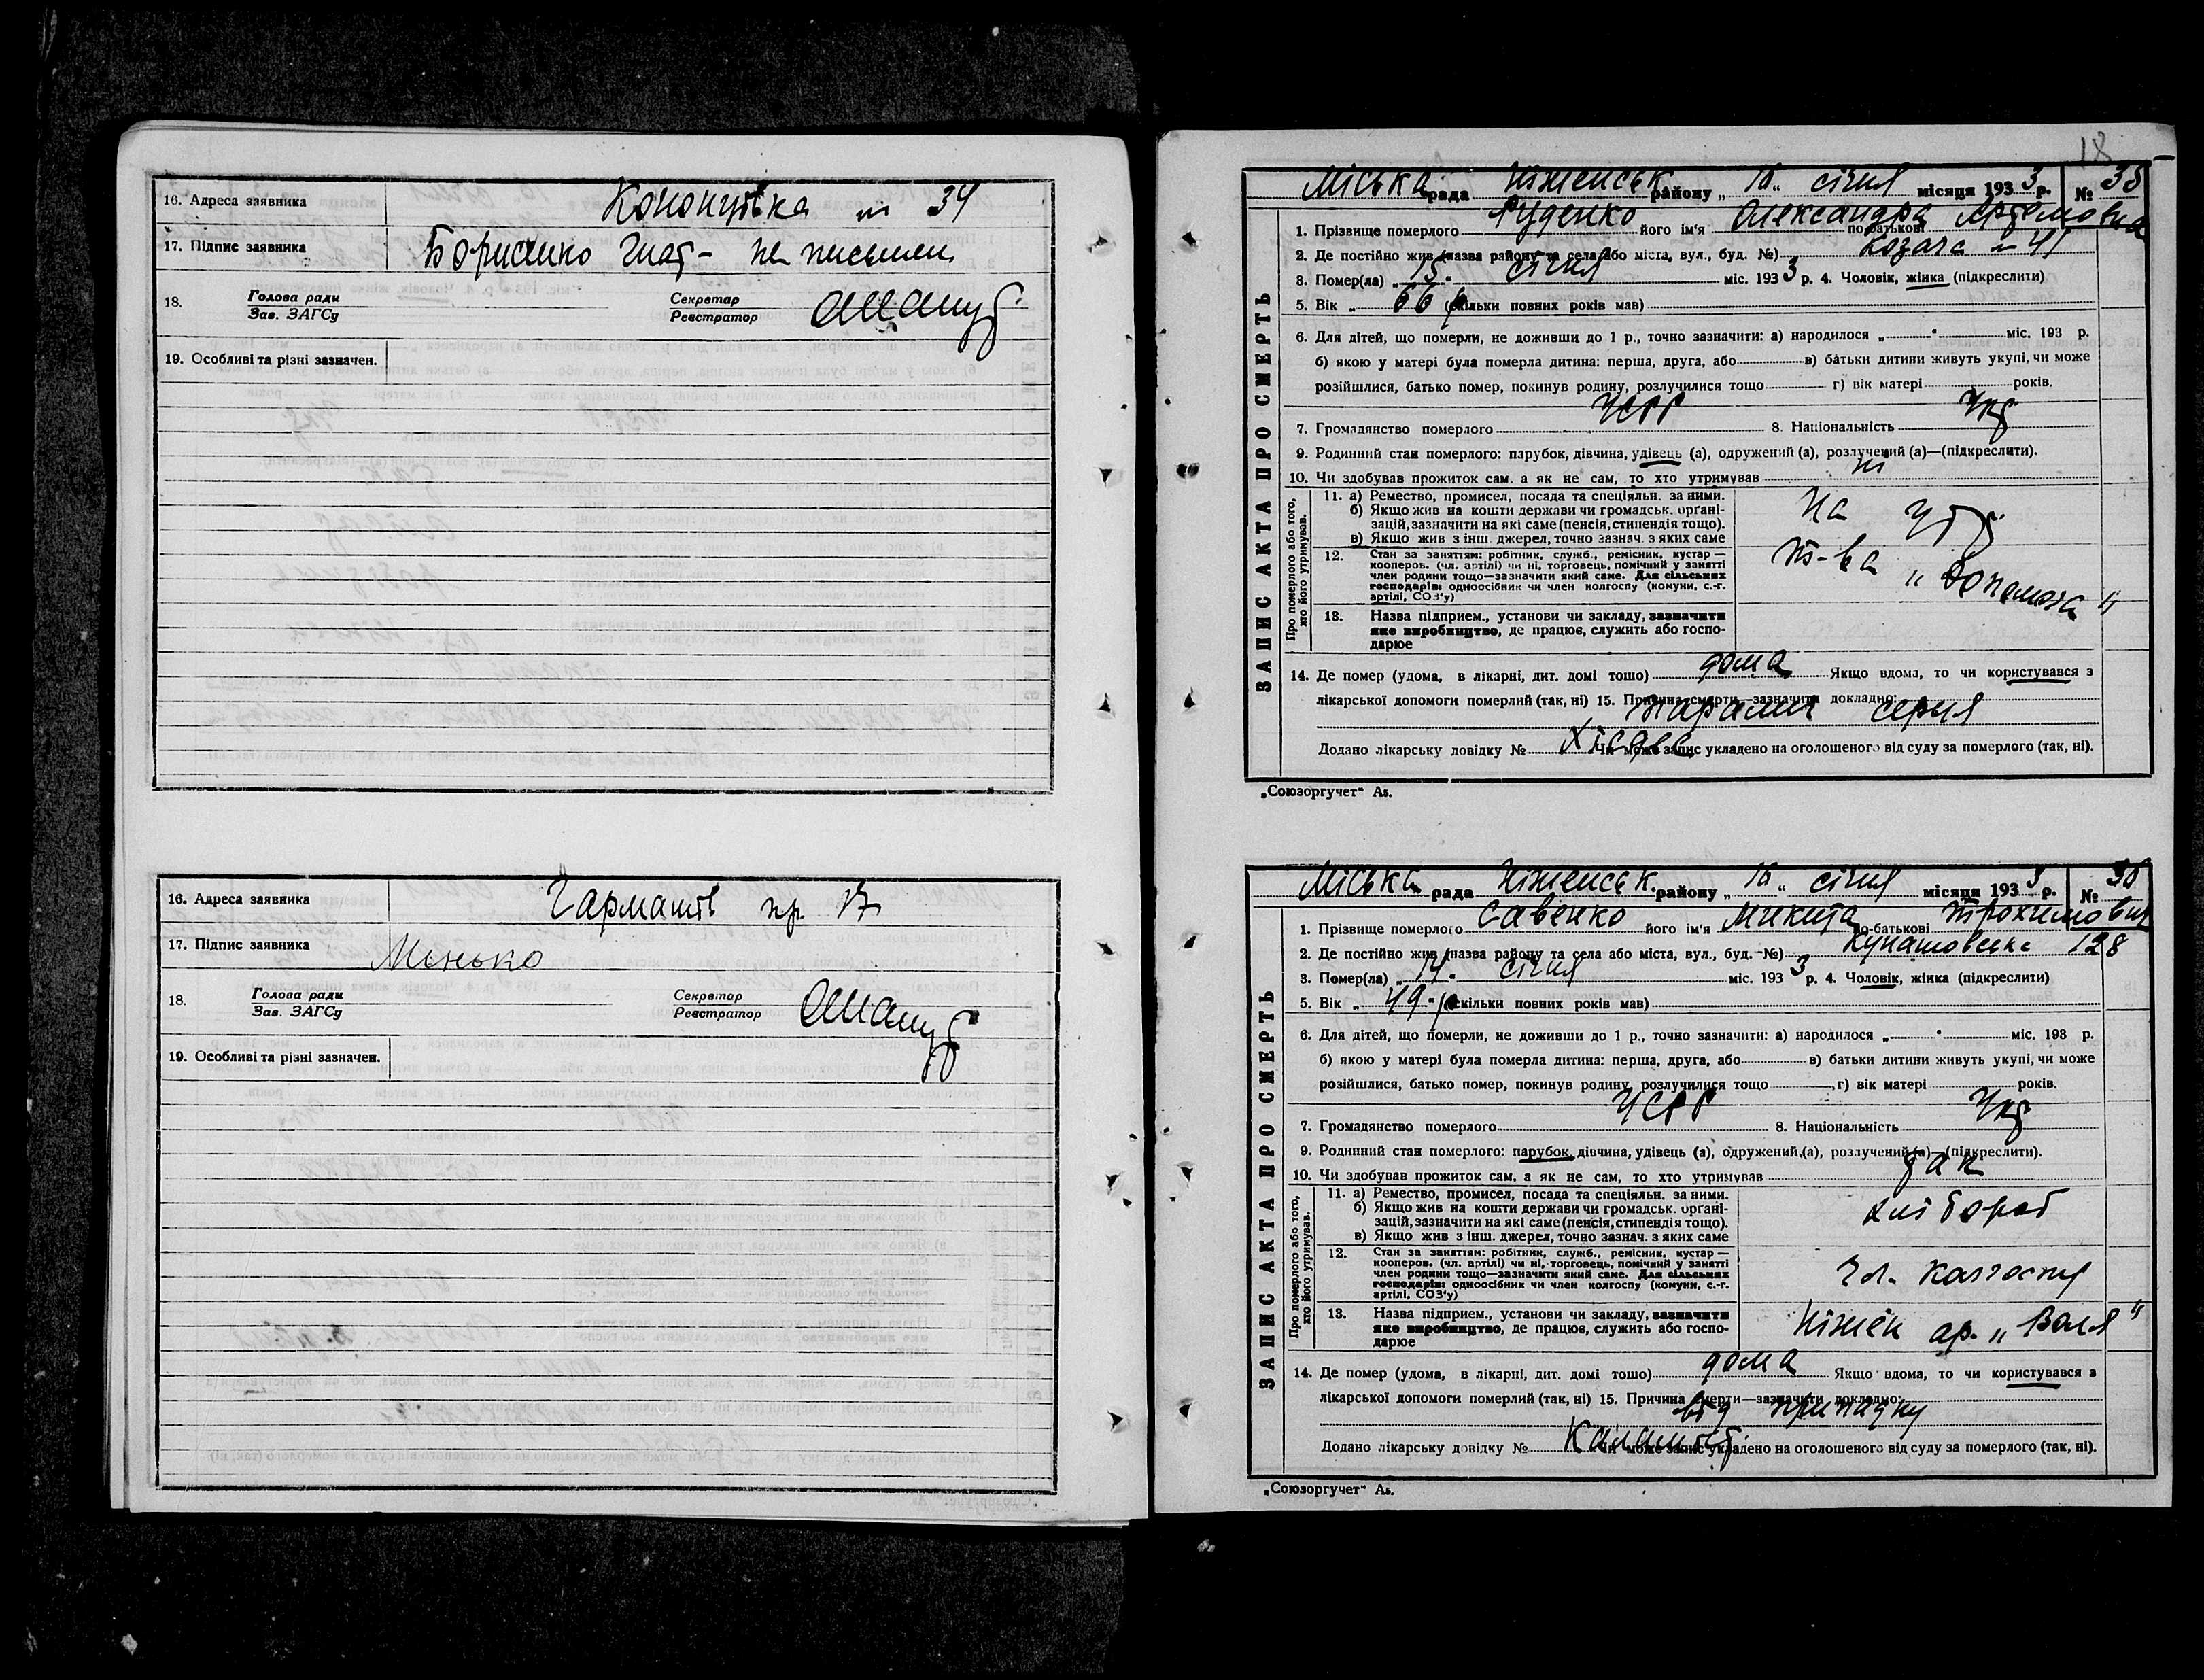 16. Адреса заявника Кононувка № 34
17. Підпис заявника Борисенко Гнат - не письмен
18. Голова ради Секретар
Зав. ЗАГСу Реєстратор
19. Особливі та різні зазначен.
16. Адреса заявника пр 17
17. Підпис заявника Менько
18. Голова ради Секретар
Зав. ЗАГСу Реєстратор
19. Особливі та різні зазначен.
18
Міська рада Ніженськ району „16“ січня місяця 1933 р. № 35
ЗАПИС АКТА ПРО СМЕРТЬ
1. Прізвище померлого Руденко його ім'я Олександра по-батькові Артемовна
2. Де постійно жив (назва району та села або міста, вул., буд. №) Козача № 41
3. Помер(ла) „15“ січня міс. 1933 р. 4. Чоловік, жінка (підкреслити)
5. Вік „ 66 р (скільки повних років мав)
6. Для дітей, що померли, не доживши до 1 р., точно зазначити: а) народилося „ “ міс. 193 р.
б) якою у матері була померла дитина: перша, друга, або в) батьки дитини живуть укупі, чи може
розійшлися, батько помер, покинув родину, розлучилися тощо г) вік матері років.
7. Громадянство померлого УСРР 8. Національність Укр
9. Родинний стан померлого: парубок, дівчина, удівець (а), одружений (а), розлучений (а)—(підкреслити).
10. Чи здобував прожиток сам, а як не сам, то хто утримував ні
Про померлого або того, хто його утримував.
11. а) Ремество, промисел, посада та спеціяльн. за ними.
б) Якщо жив на кошти держави чи громадськ. органі-
зацій, зазначити на які саме (пенсія, стипендія тощо).
в) Якщо жив з інш. джерел, точно зазнач. з яких саме
На утр
12. Стан за заняттям: робітник, служб., ремісник, кустар —
кооперов. (чл. артілі) чи ні, торговець, помічний у занятті
член родини тощо—зазначити який саме. Для сільських
господарів: одноосібник чи член колгоспу (комуни, с.-г.
артілі, СОЗ'у)
т-ва „Допомога“
13. Назва підприєм., установи чи закладу, зазначити
яке виробництво, де працює, служить або госпо-
дарює
14. Де помер (удома, в лікарні, дит. домі тощо) дома Якщо вдома, то чи користувався з
лікарської допомоги померлий (так, ні) 15. Причина смерти—зазначити докладно:
параліч серця
Додано лікарську довідку № Чи може запис укладено на оголошеного від суду за померлого (так, ні).
„Союзоргучет“ А5.
Міська рада Ніженськ. району „16“ січня місяця 1933 р. № 36
ЗАПИС АКТА ПРО СМЕРТЬ
1. Прізвище померлого Савенко його ім'я Микита по-батькові Трохимович
2. Де постійно жив (назва району та села або міста, вул., буд. №) Кунашовська 128
3. Помер(ла) „14“ січня міс. 1933 р. 4. Чоловік, жінка (підкреслити)
5. Вік „ 49 р (скільки повних років мав)
6. Для дітей, що померли, не доживши до 1 р., точно зазначити: а) народилося „ “ міс. 193 р.
б) якою у матері була померла дитина: перша, друга, або в) батьки дитини живуть укупі, чи може
розійшлися, батько помер, покинув родину, розлучилися тощо г) вік матері років.
7. Громадянство померлого УСРР 8. Національність Укр
9. Родинний стан померлого: парубок, дівчина, удівець (а), одружений (а), розлучений (а)—(підкреслити).
10. Чи здобував прожиток сам, а як не сам, то хто утримував так
Про померлого або того, хто його утримував.
11. а) Ремество, промисел, посада та спеціяльн. за ними.
б) Якщо жив на кошти держави чи громадськ. органі-
зацій, зазначити на які саме (пенсія, стипендія тощо).
в) Якщо жив з інш. джерел, точно зазнач. з яких саме
хлібороб
12. Стан за заняттям: робітник, служб., ремісник, кустар —
кооперов. (чл. артілі) чи ні, торговець, помічний у занятті
член родини тощо—зазначити який саме. Для сільських
господарів: одноосібник чи член колгоспу (комуни, с.-г.
артілі, СОЗ'у)
чл. колгоспу
13. Назва підприєм., установи чи закладу, зазначити
яке виробництво, де працює, служить або госпо-
дарює
Ніжен ар. „Воля“
14. Де помер (удома, в лікарні, дит. домі тощо) дома Якщо вдома, то чи користувався з
лікарської допомоги померлий (так, ні) 15. Причина смерти—зазначити докладно:
від припадку
Додано лікарську довідку № Чи може запис укладено на оголошеного від суду за померлого (так, ні).
„Союзоргучет“ А5.